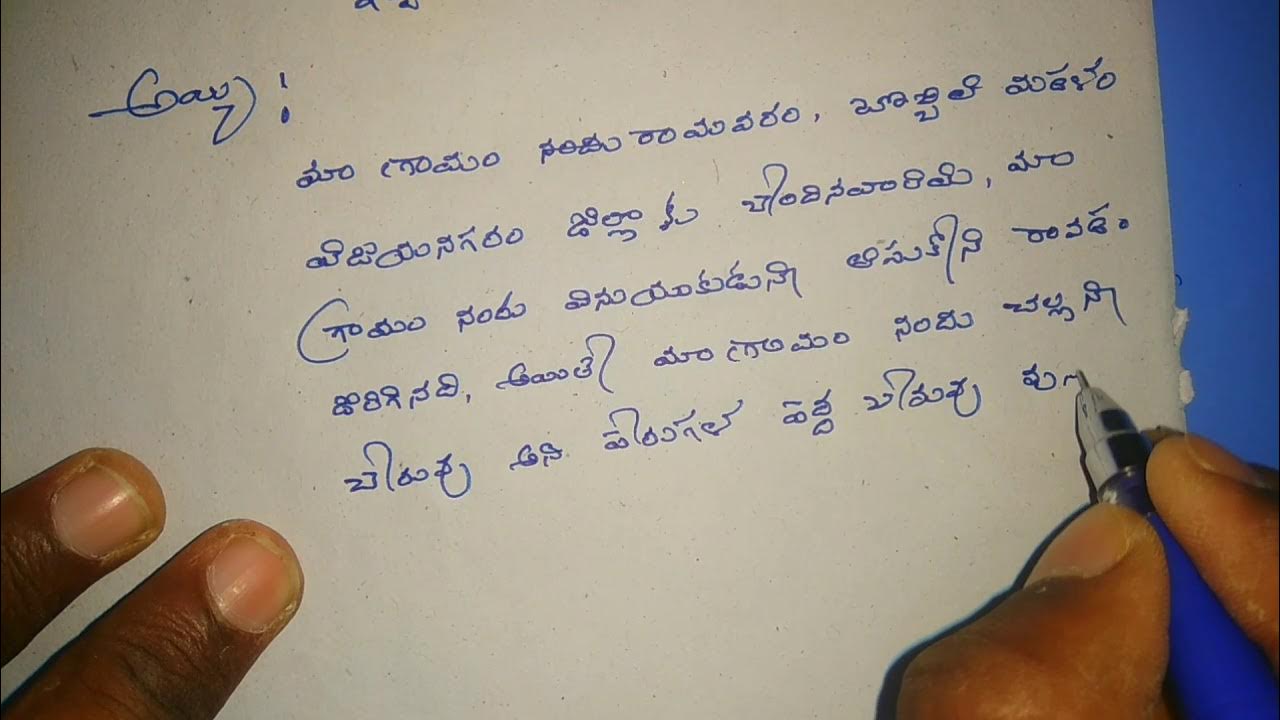 అయ్యా :
మా గ్రామం నందు రామవరం, బొబ్బిలి మండలం
విజయనగరం జిల్లా కు చెందినవారిమి, మా
గ్రామం నందు వినాయకుడుని తీసుకొని రావడం
జరిగినది, అయితే మా గ్రామం నందు చల్లని
చెరువు అని పేరుగల పెద్ద చెరువు వు